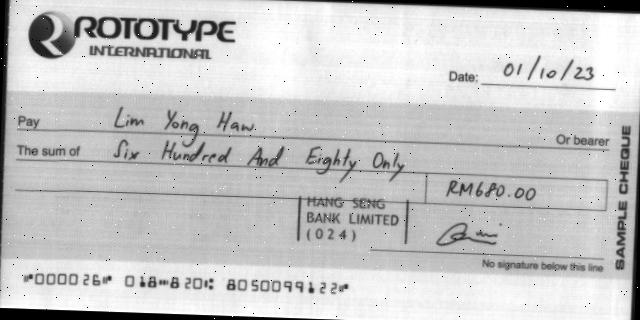 ROTOTYPE
INTERNATIONAL
Date: 01/10/23
Pay Lim Yong Haw. Or bearer
The sum of Six Hundred And Eighty Only
RM680.00
HANG SENG
BANK LIMITED
(024)
No signature below this line
SAMPLE CHEQUE
⑈000026⑈ 018⑉820⑆ 8050099122⑈